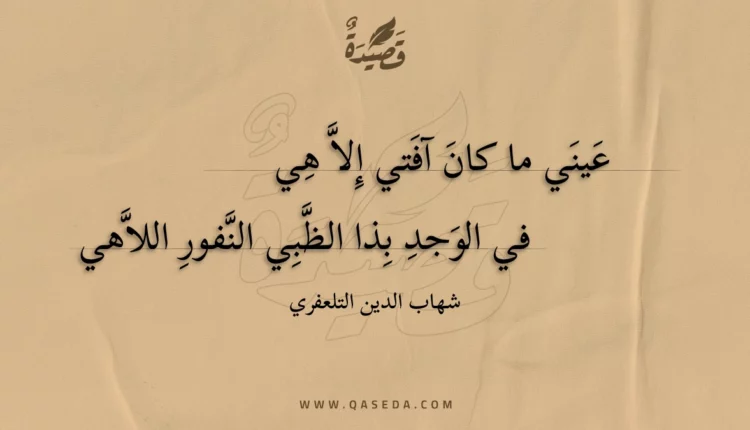 قَصِيْدَةٌ
عَينَي ما كانَ آفَتي إِلاَّ هِي
في الوَجدِ بِذا الظَّبِي النَّفورِ اللاَّهي
شهاب الدين التلعفري
WWW.QASEDA.COM